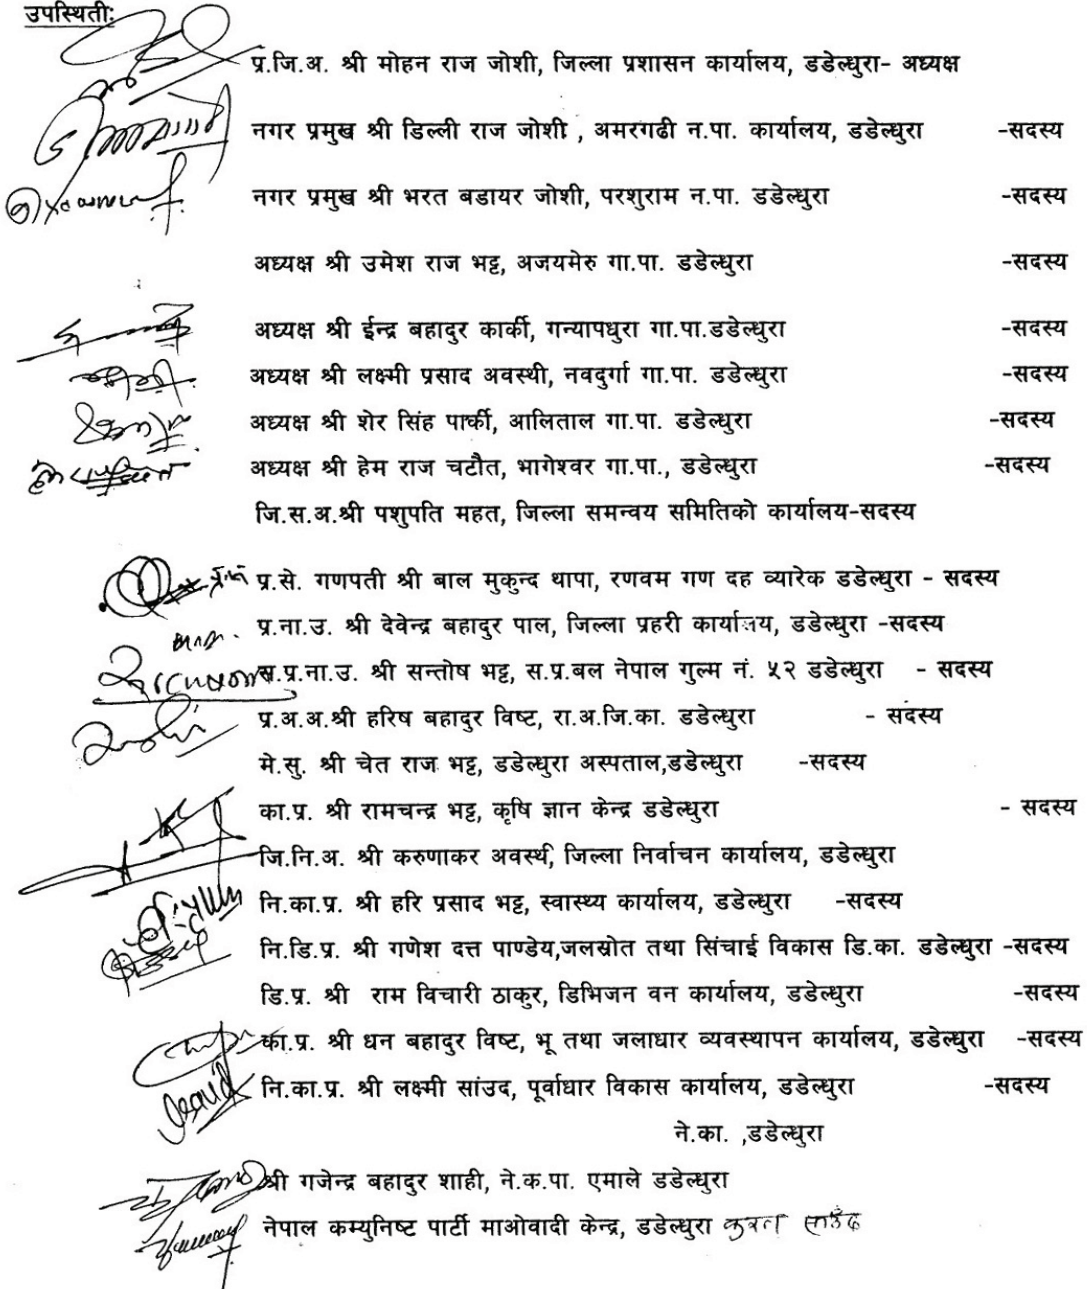 उपस्थितीः
प्र.जि.अ. श्री मोहन राज जोशी, जिल्ला प्रशासन कार्यालय, डडेल्धुरा- अध्यक्ष
नगर प्रमुख श्री डिल्ली राज जोशी , अमरगढी न.पा. कार्यालय, डडेल्धुरा -सदस्य
नगर प्रमुख श्री भरत बडायर जोशी, परशुराम न.पा. डडेल्धुरा -सदस्य
अध्यक्ष श्री उमेश राज भट्ट, अजयमेरु गा.पा. डडेल्धुरा -सदस्य
अध्यक्ष श्री ईन्द्र बहादुर कार्की, गन्यापधुरा गा.पा.डडेल्धुरा -सदस्य
अध्यक्ष श्री लक्ष्मी प्रसाद अवस्थी, नवदुर्गा गा.पा. डडेल्धुरा -सदस्य
अध्यक्ष श्री शेर सिंह पार्की, आलिताल गा.पा. डडेल्धुरा -सदस्य
अध्यक्ष श्री हेम राज चटौत, भागेश्वर गा.पा., डडेल्धुरा -सदस्य
जि.स.अ.श्री पशुपति महत, जिल्ला समन्वय समितिको कार्यालय-सदस्य
प्र.से. गणपती श्री बाल मुकुन्द थापा, रणवम गण दह व्यारेक डडेल्धुरा - सदस्य
प्र.ना.उ. श्री देवेन्द्र बहादुर पाल, जिल्ला प्रहरी कार्यालय, डडेल्धुरा -सदस्य
स.प्र.ना.उ. श्री सन्तोष भट्ट, स.प्र.बल नेपाल गुल्म नं. ५२ डडेल्धुरा - सदस्य
प्र.अ.अ.श्री हरिष बहादुर विष्ट, रा.अ.जि.का. डडेल्धुरा - सदस्य
मे.सु. श्री चेत राज भट्ट, डडेल्धुरा अस्पताल,डडेल्धुरा -सदस्य
का.प्र. श्री रामचन्द्र भट्ट, कृषि ज्ञान केन्द्र डडेल्धुरा - सदस्य
जि.नि.अ. श्री करुणाकर अवस्थी, जिल्ला निर्वाचन कार्यालय, डडेल्धुरा
नि.का.प्र. श्री हरि प्रसाद भट्ट, स्वास्थ्य कार्यालय, डडेल्धुरा -सदस्य
नि.डि.प्र. श्री गणेश दत्त पाण्डेय,जलस्रोत तथा सिंचाई विकास डि.का. डडेल्धुरा -सदस्य
डि.प्र. श्री राम विचारी ठाकुर, डिभिजन वन कार्यालय, डडेल्धुरा -सदस्य
का.प्र. श्री धन बहादुर विष्ट, भू तथा जलाधार व्यवस्थापन कार्यालय, डडेल्धुरा -सदस्य
नि.का.प्र. श्री लक्ष्मी सांउद, पूर्वाधार विकास कार्यालय, डडेल्धुरा -सदस्य
ने.का. ,डडेल्धुरा
श्री गजेन्द्र बहादुर शाही, ने.क.पा. एमाले डडेल्धुरा
नेपाल कम्युनिष्ट पार्टी माओवादी केन्द्र, डडेल्धुरा